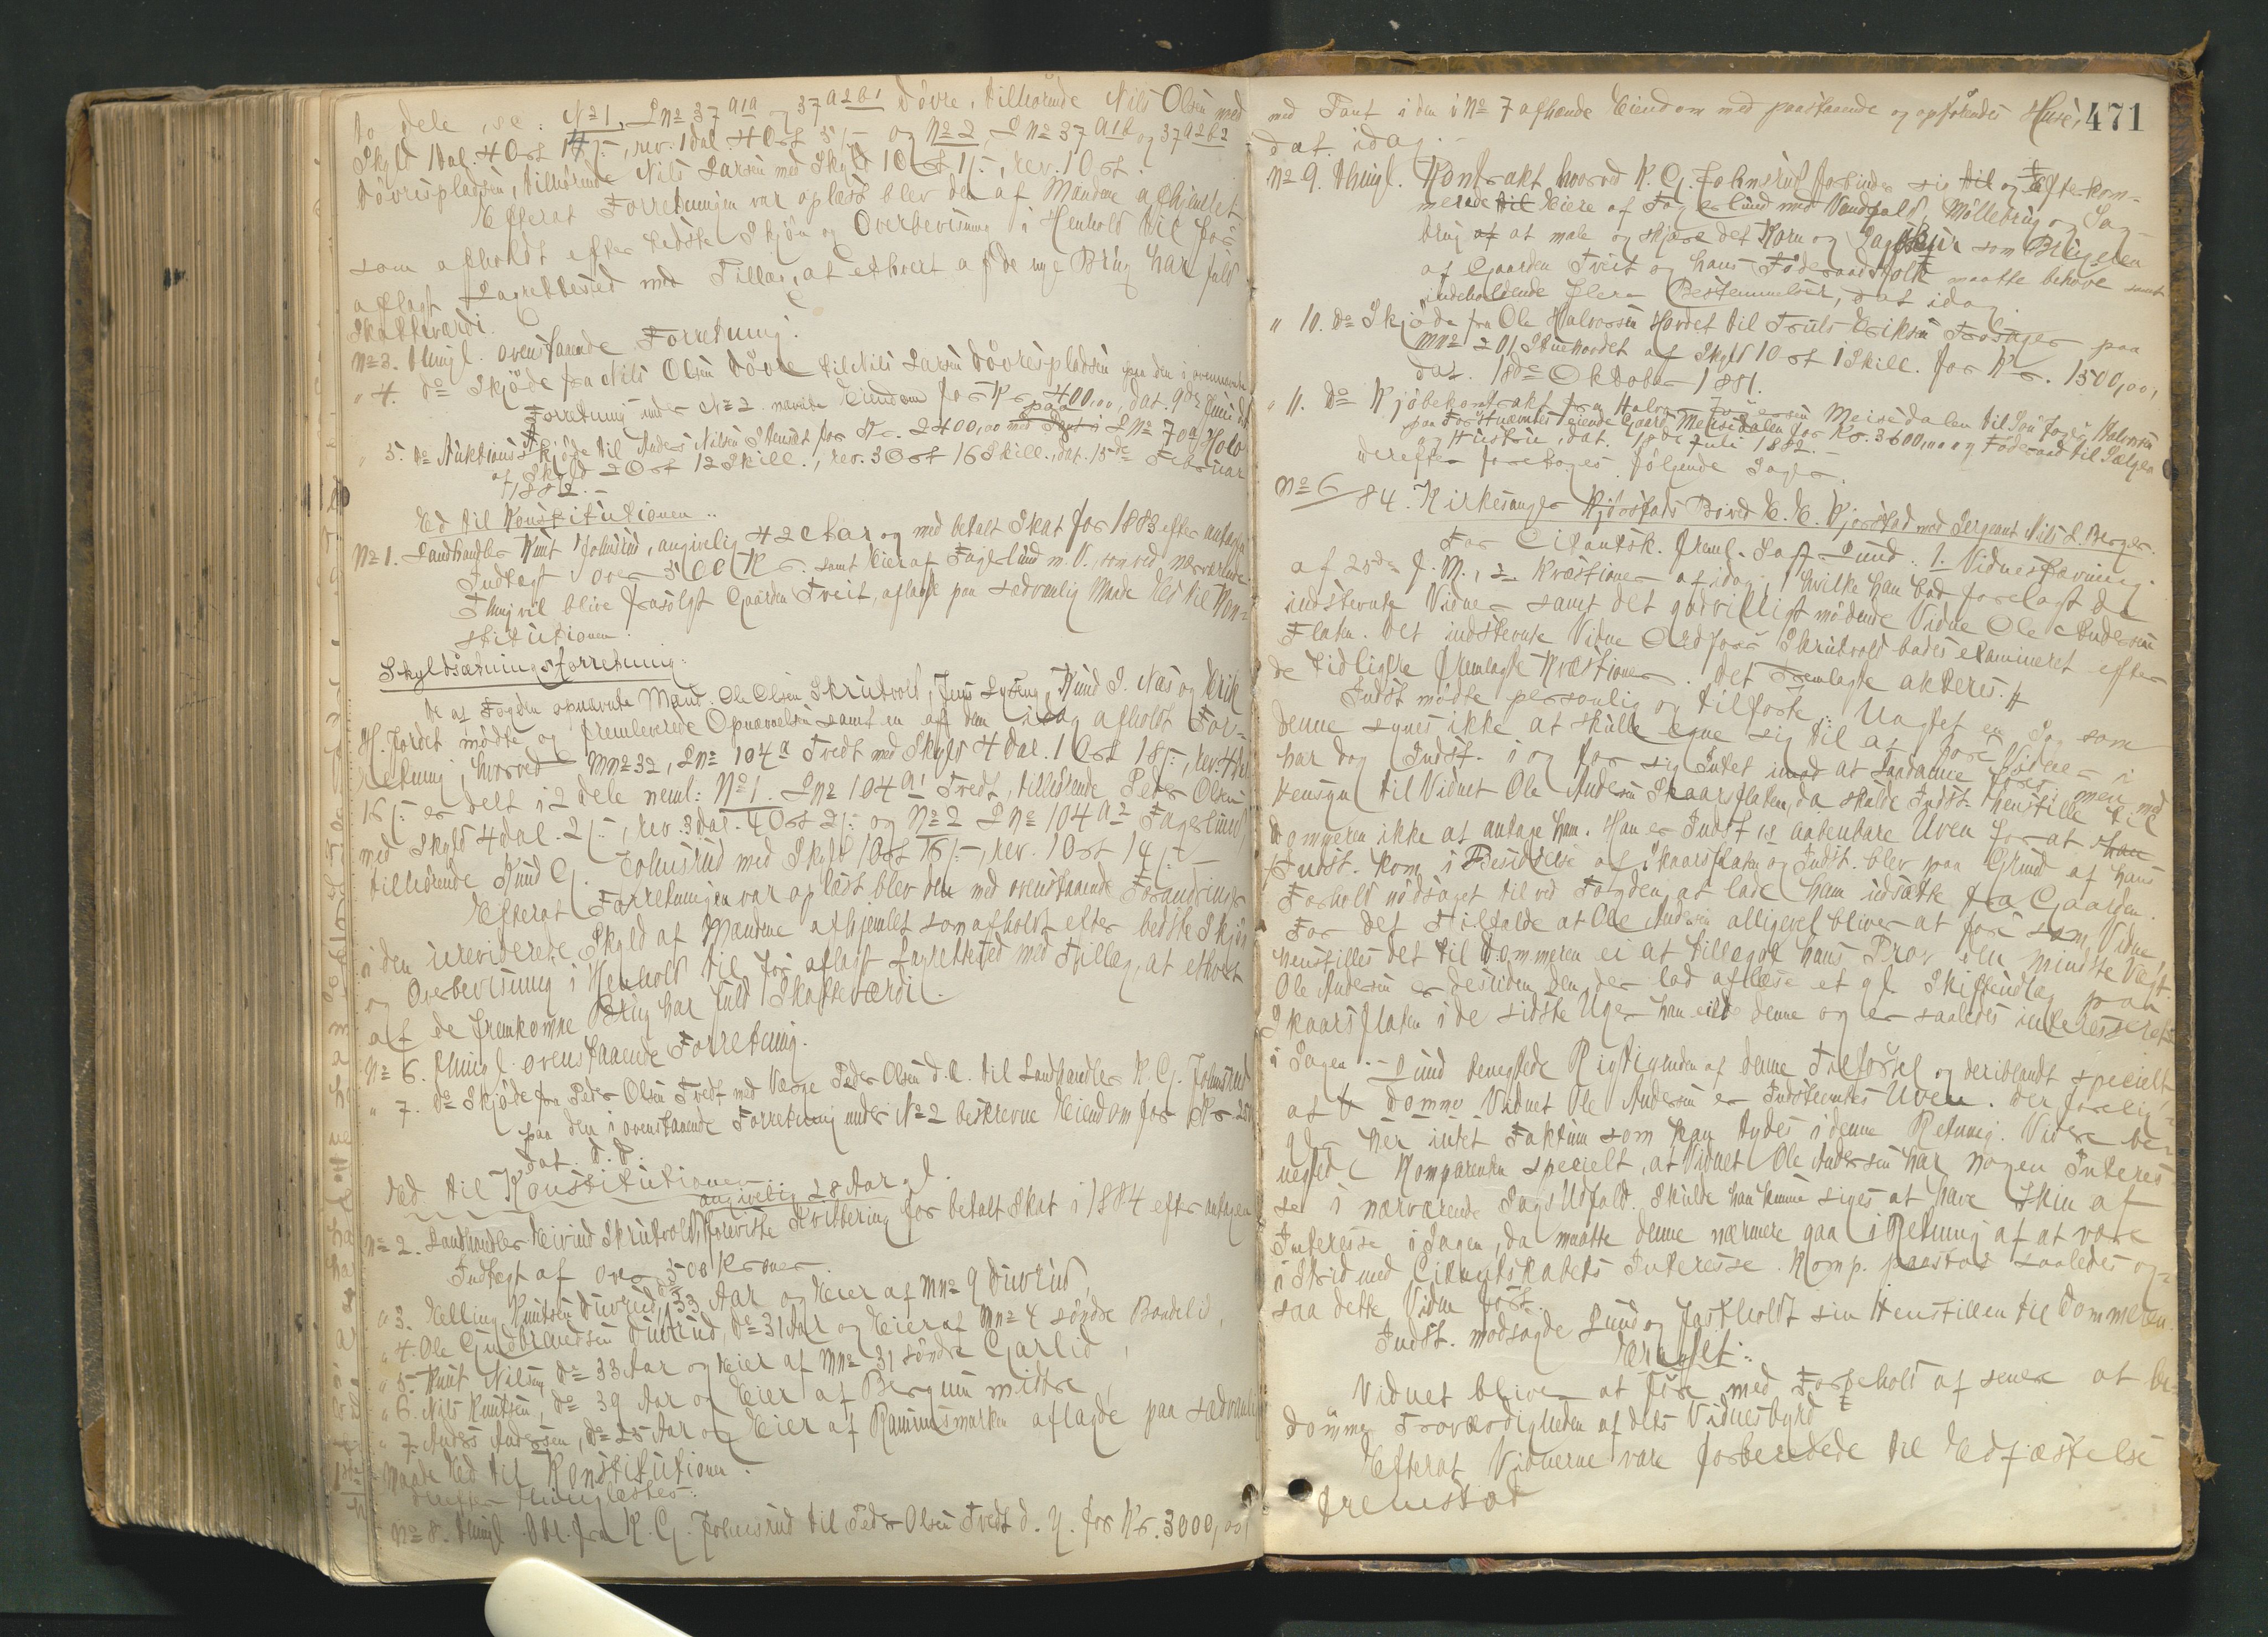 to dele, sc: No 1. Lno 37 a1a og 37 a2b1 Døvre, tilhørende Nils Olsen med
Skyld 1 Dal. 4 Ort 14 ſ:, rev. 1 Dal. 4 Ort 5 ſ: og No 2, Lno 37 a1b og 37 a2b2
Døvrespladsen, tilhørende Nils Larsen med Skyld 1 Ort 1 ſ:, rev. 1 Ort.
Efterat Forretningen var oplæst blev den af Mændene afhjemlet
som afholdt efter bedste Skjøn og Overbevisning i Henhold til før
aflagt Lagrettesed med Tillæg, at ethvert af de nye Brug har fuld
Skatteværdi.
No 3. Thingl. ovenstaaende Forretning.
" 4. Do Skjøde fra Nils Olsen Døvre til Nils Larsen Døvrespladsen paa den i ovennævnte
Forretning under No 2 nævnte Eiendom for Kr. 400,00, dat. 9de Juni
" 5. Do Auktionsskjøde til Anders Nilsen for Kr. 2400,00 paa Lno 70a Holo
af Skyld 2 Ort 12 Skill., rev. 3 Ort 16 Skill., dat. 15de Februar
1882.
Ed til Konstitutionen.
No 1. Landhandler Knut Johnsrud, angivelig 42 Aar og med betalt Skat for 1883 efter antagen
Indtægt over 500 Kr. samt Eier af Fagerlund m. V., som ved nærværende
Thing vil blive frasolgt Gaarden Tveit, aflagde paa sædvanlig Maade Ed til Kon-
stitutionen.
Skyldsætningsforretning.
De af Fogden opnævnte Mænd Ole Olsen Skrutvold, Jens Lysing, Knud J. Næs og Erik
H. Jordet mødte og fremleverede Opnævnelsen samt en af dem idag afholdt For-
retning, hvorved Mno 32, Lno 104a Tvedt med Skyld 4 Dal. 1 Ort 18 ſ:, rev. 4 Dal.
16 ſ: er delt i 2 dele neml: No 1. Lno 104 a1 Tvedt, tilhørende Peder Olsen
med Skyld 4 Dal. 2 ſ:, rev. 3 Dal. 4 Ort 2 ſ: og No 2 Lno 104 a2 Fagerlund
tilhørende Knud G. Johnsrud med Skyld 1 Ort 16 ſ:, rev. 1 Ort 14 ſ:
Efterat Forretningen var oplæst blev den med ovenstaaende Forandringer
i den ureviderede Skyld af Mændene afhjemlet som afholdt efter bedste Skjøn
og Overbevisning i Henhold til før aflagt Lagrettesed med Tillæg, at ethvert
af de fremkomne Brug har fuld Skatteværdi.
No 6. Thingl. ovenstaaende Forretning.
" 7. Do Skjøde fra Peder Olsen Tvedt med Værge Peder Olsen d. æ. til Landhandler K. G. Johnsrud
paa den i ovenstaaende Forretning under No 2 beskrevne Eiendom for Kr
dat. d. D.
Ed til Konstitutionen.
No 2. Landhandler Eivind Skrutvold, angivelig 28 Aar gl. foreviste Kvittering for betalt Skat i 1884 efter antagen
Indtægt af over 500 Kroner.
" 3. Elling Knutsen Tuvrud, Do 33 Aar og Eier af Mno 9 Tuvrud,
" 4. Ole Gudbrandsen Tuvrud, Do 31 Aar og Eier af Mno 4 søndre Bandelid,
" 5. Knut Nilsen, Do 33 Aar og Eier af Mno 31 søndre Garlid,
" 6. Nils Knutsen, Do 39 Aar og Eier af Bergum midtre
" 7. Anders Andersen, Do 25 Aar og Eier af Ramunsmarken aflagde paa sædvanlig
Maade Ed til Konstitutionen.
Derefter thinglæstes:
No 8. Thingl. Obl. fra K. G. Johnsrud til Peder Olsen Tvedt d. y. for Kr. 3000,00,
471
med Pant i den i No 7 afhændede Eiendom med paastaaende og opførendes Huse,
dat. idag.
No 9. Thingl. Kontrakt hvorved K. G. Johnsrud forbinder sig og Efterkom-
mende Eiere af Fagerlund med Vandfald, Møllebrug og Sag-
brug at male og skjære det Korn og Sagtømmer som Brugeren
af Gaarden Tveit og hans Føderaadsfolk maatte behøve samt
indeholdende flere Bestemmelser, dat. idag.
" 10. Do Skjøde fra Ole Halvorsen Hordet til Truls Eriksen Frøsager paa
Mno 201 Stuehordet af Skyld 1 Ort 1 Skill. for Kr. 1500,00,
dat. 18de Oktober 1881.
" 11. Do Kjøbekontrakt fra Halvor Meisedalen til Søn Halvorsen
paa Førstnævntes eiende Gaard Meisedalen for Kr. 3600,00 og Føderaad til Sælger
og Hustru, dat. 18de Juli 1882.
Derefter foretoges følgende Sager.
No 6/84. Kirkesanger Kjørstads Bo ved E. E. Kjørstad mod Sergeant Nils L. Berger.
For Citantsk. freml. Sagf. Lund: 1. Vidnestævning
af 25de f. M., 2. Kvæstioner af idag, hvilke han bad forelagt de
indstevnte Vidner samt det godvilligt mødende Vidne Ole Andersen
Flaten. Det indstevnte Vidne Ordfører Skrutvold bades examineret efter
de tidligere fremlagte Kvæstioner. Det Fremlagte akteres.
Indst. mødte personlig og tilførte: Uagtet en Sag som
denne synes ikke at skulle egne sig til at føre Vidner i
har dog Indst. i og for sig Intet imod at saadanne føres; men med
Hensyn til Vidnet Ole Andersen Skaarsflaten, da skulde Indst. henstille til
Dommeren ikke at antage ham. Han er Indst.s aabenbare Uven for at
Indst. kom i Besiddelse af Skaarsflaten og Indst. blev paa Grund af hans
Forhold nødsaget til ved Fogden at lade ham udsætte fra Gaarden.
For det Tilfælde at Ole Andersen alligevel bliver at føre som Vidne,
henstilles det til Dommeren ei at tillægge hans Prov den mindste Vægt.
Ole Andersen er desuden den der lod aflæse et gl. Skifteudlæg paa
Skaarsflaten i de sidste Uger han eiede denne og er saaledes interesseret
i Sagen. - Lund benegtede Rigtigheden af denne Tilførsel og deriblandt specielt
at Vidnet Ole Andersen er Indstevntes Uven. Der forelig-
ger her intet Faktum som kan tydes i denne Retning. Videre be-
negtede Komparenten specielt, at Vidnet Ole Andersen har nogen Interes-
se i nærværende Sags Udfald. Skulde han kunne siges at have Skin af
Interesse i Sagen, da maatte denne nærmere gaa i Retning af at være
i Strid med Citantskabets Interesse. Komp. paastod saaledes og-
saa dette Vidne ført.
Indst. modsagde Lund og fastholdt sin Henstillen til Dommeren.
Eragtet:
Vidnet bliver at føre med Forbehold af senere at be-
dømme Troværdigheden af dets Vidnesbyrd.
Efterat Vidnerne vare forberedede til Edfæstelse
fremstod